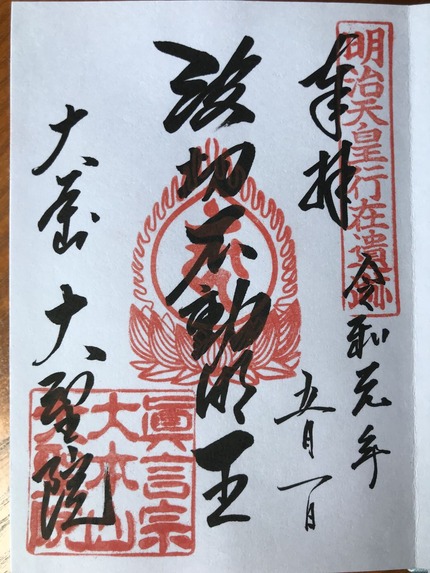 明治天皇行在遺跡
奉拝
令和元年
五月一日
波切不動明王
大本山 大聖院
眞言宗
大本山